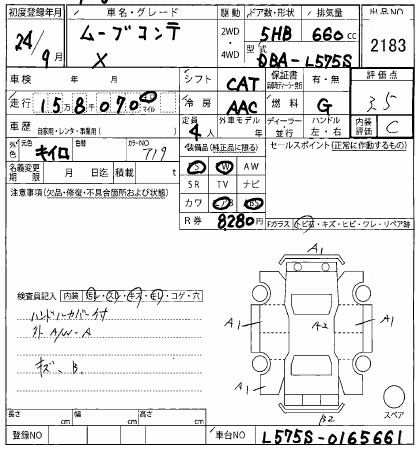 初度登録年月 車名・グレード 駆動 ドア数・形状 排気量 出品NO
24年 9月 ムーブコンテ X 2WD・4WD 5HB 660cc 2183
型式 DBA-L575S
車検 年 月 シフト CAT 保証書 有・無 評価点
走行 15万8千070 km マイル 冷房 AAC 燃料 G 3.5
車歴 自家用・レンタ・事業用( ) 定員 4人 外車モデル 年 ディーラー・並行 ハンドル 左・右 内装評価 C
外色 元色 キイロ 色替 カラーNO 719 装備品(純正品に限る) セールスポイント(正常に作動するもの)
名義変更期限 月 日迄 積載 t PS PW AW
注意事項(欠品・修復・不具合箇所および状態) SR TV ナビ
カワ
R券 8280円 Fガラス トビ石・キズ・ヒビ・ワレ・リペア跡
A1
検査員記入 内装 汚レ・スレ・キズ・モレ・コゲ・穴
ハンドルカバー付
外 A/W-A
キズ、B.
A1 A2 A1
A1 A1
B2
スペア
長さ cm 幅 cm 高さ cm
登録NO 車台NO L575S-0165661